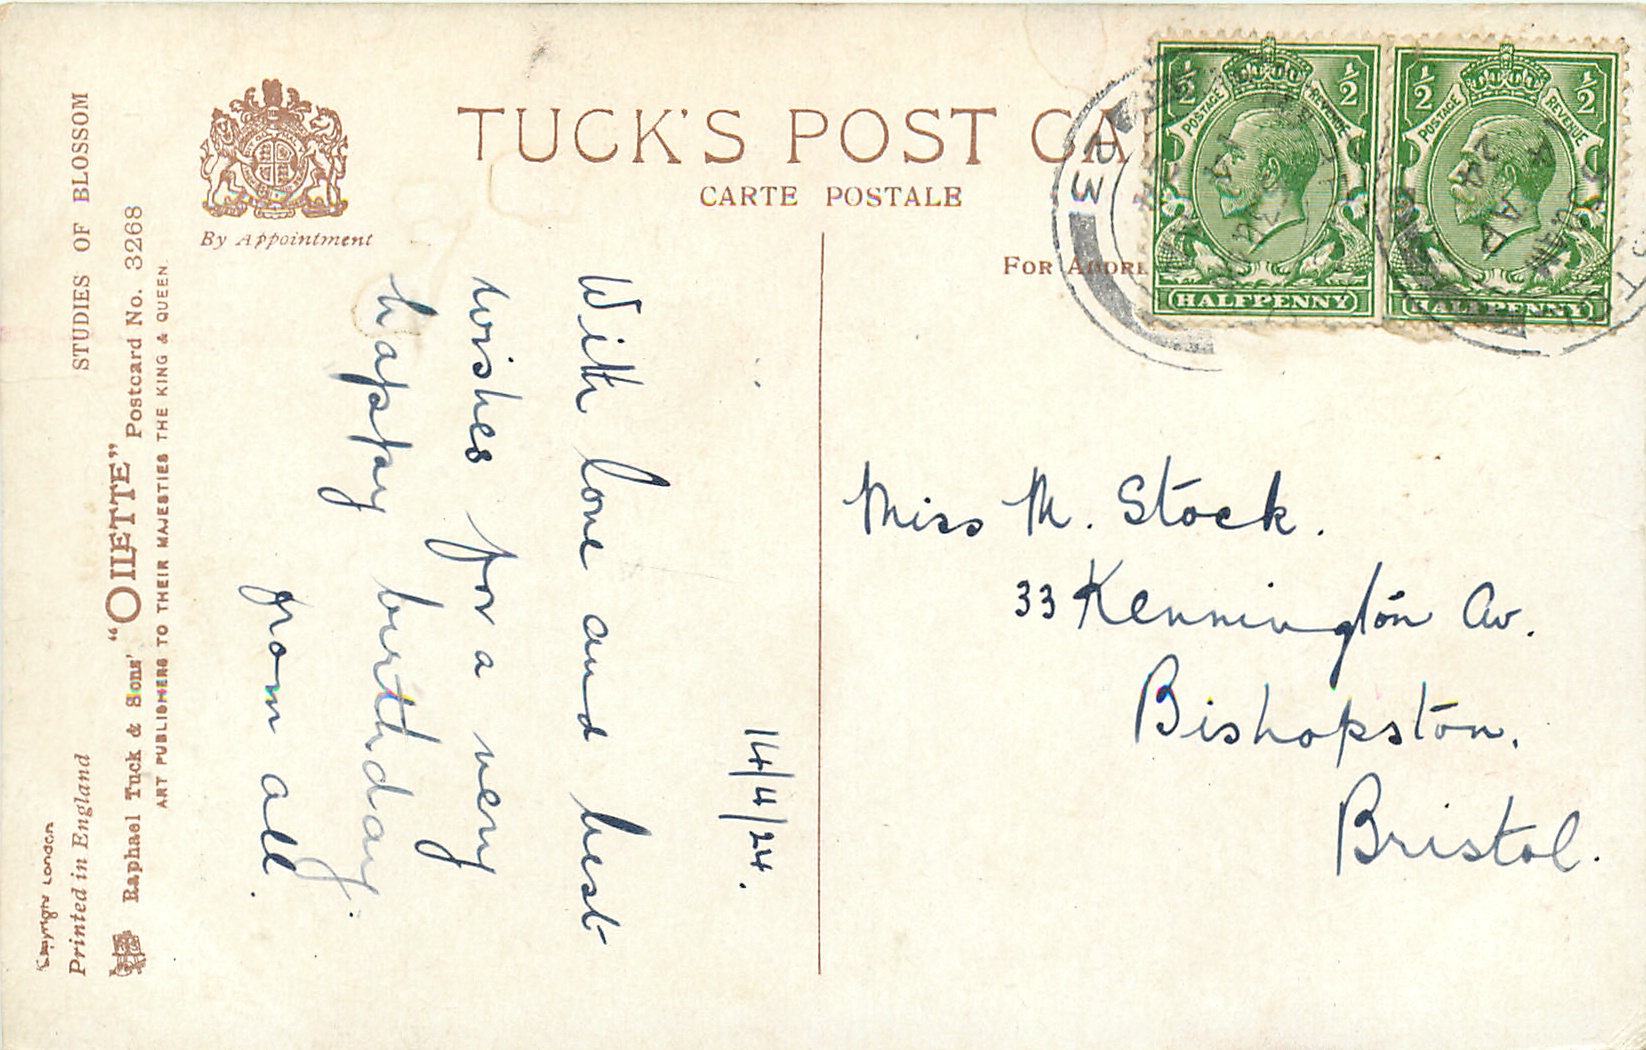 TUCK'S POST CA
CARTE POSTALE
By Appointment
FOR ADDRE
STUDIES OF BLOSSOM
Raphael Tuck & Sons' "OILETTE" Postcard No. 3268
ART PUBLISHERS TO THEIR MAJESTIES THE KING & QUEEN.
Printed in England
Copyright London
14/4/24.
With love and best
wishes for a very
happy birthday.
from all.
Miss M. Stock.
33 Kennington Av.
Bishopston.
Bristol.
½ ½
POSTAGE REVENUE
HALFPENNY
½ ½
POSTAGE REVENUE
HALFPENNY
23